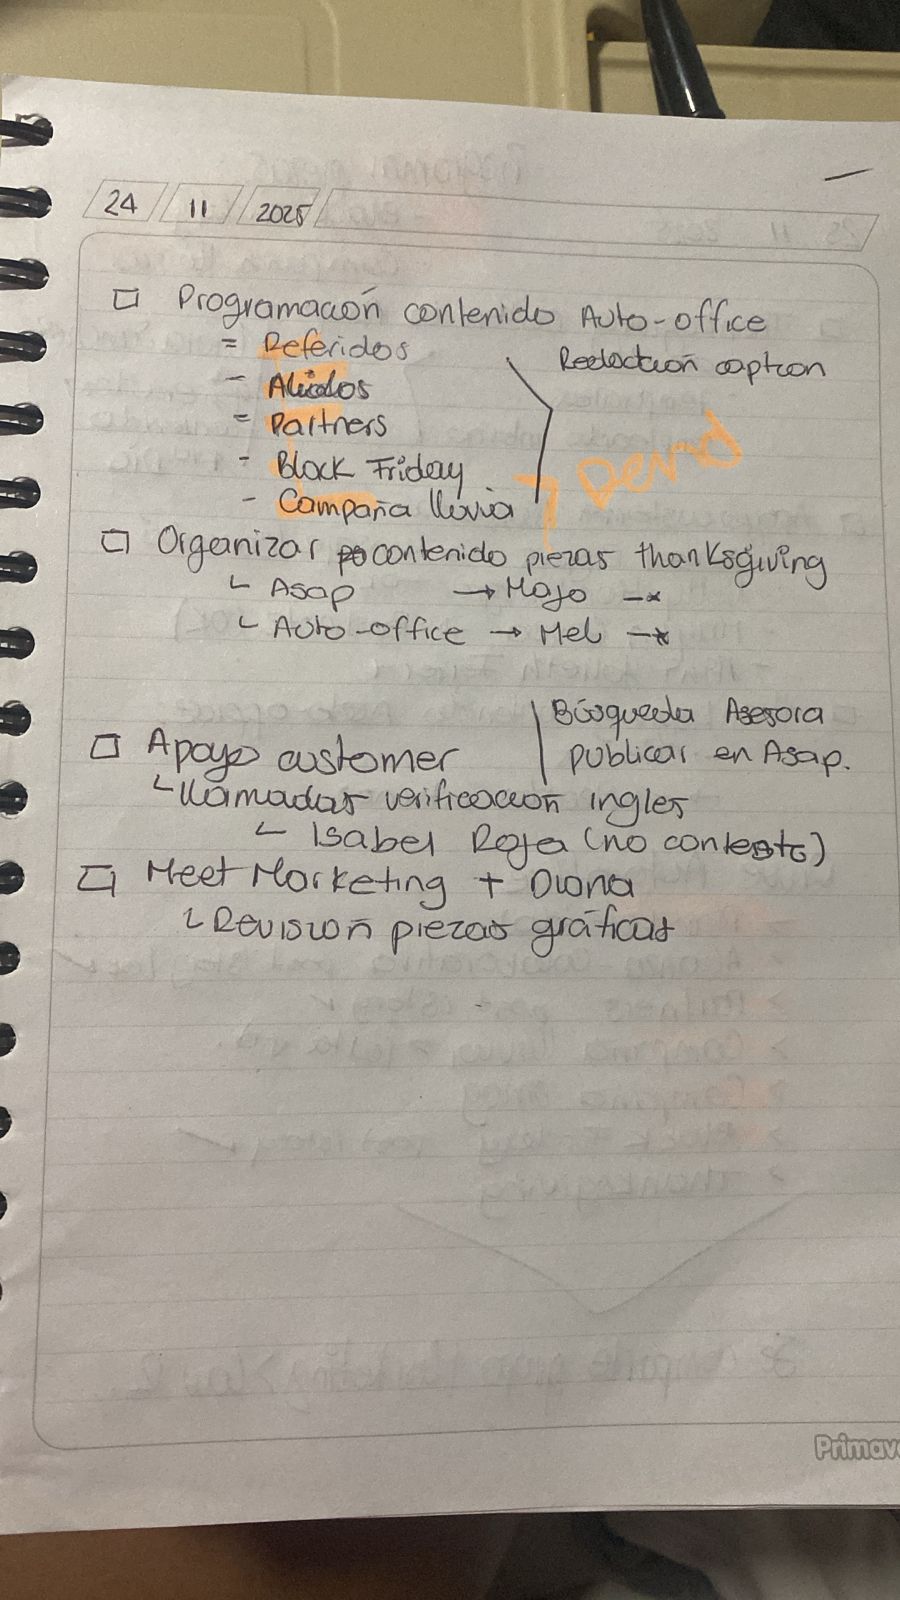 24 11 2025
□ Programación contenido Auto-office
= Referidos
Redacción caption
- Aliados
= Partners
Pend
- Black Friday
- Campaña lluvia
□ Organizar contenido piezas thanksgiving
↳ Asap → Majo -*
↳ Auto-office → Mel -*
Búsqueda Asesora
publicar en Asap.
□ Apoyo customer
↳ llamadas verificación ingles
↳ Isabel Roja (no contesto)
□ Meet Marketing + Diana
↳ Revisión piezas gráficas